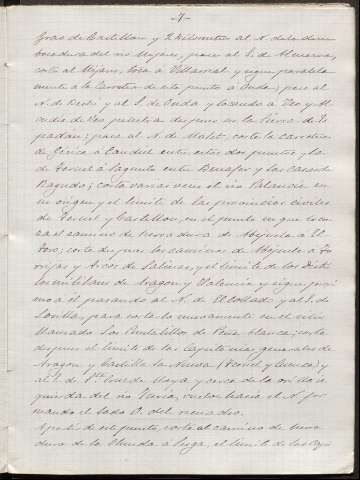 -7-
Grao de Castellon y 2 kilometros al N. de la desem
bocadura del rio Mijares, pasa al S. de Almazora,
corta al Mijares, toca à Villarreal y sigue paralela
mente à la Carretera de este punto à Onda; pasa al
N. de Bechi y al S. de Onda y tocando à Veo y Al
cudia de Veo penetra despues en la Sierra de Es
padan; pasa al N. de Matet, corta la Carretera
de Jerica à Caudiel entre estos dos puntos y la
de Teruel à Sagunto entre Benafer y las
Ragudo; corta varias veces el rio Palancia en
su origen y el limite de las provincias civiles
de Teruel y Castellon, en el punto en que to
ca el camino de herradura de Abejuela à El
Toro; corta despues los caminos de Abejuela à To
rrijas y Arcos de Salinas, y el limite de los Distri
tos militares de Aragon y Valencia y sigue proxi
mo à el pasando al N. de El Collado y al S. de
la para cortarlo nuevamente en el sitio
llamado Los Puntalillos de Peña blanca; corta
despues el limite de las Capitanias generales de
Aragon y Castilla la Nueva (Teruel y Cuenca) y
al S. de y cerca de la orilla iz
quierda del rio vuelve hacia el N. for
mando el lado O. del recuadro.
Aparte de este punto, corta al camino de herra
dura de la à Vega, el limite de las Capi